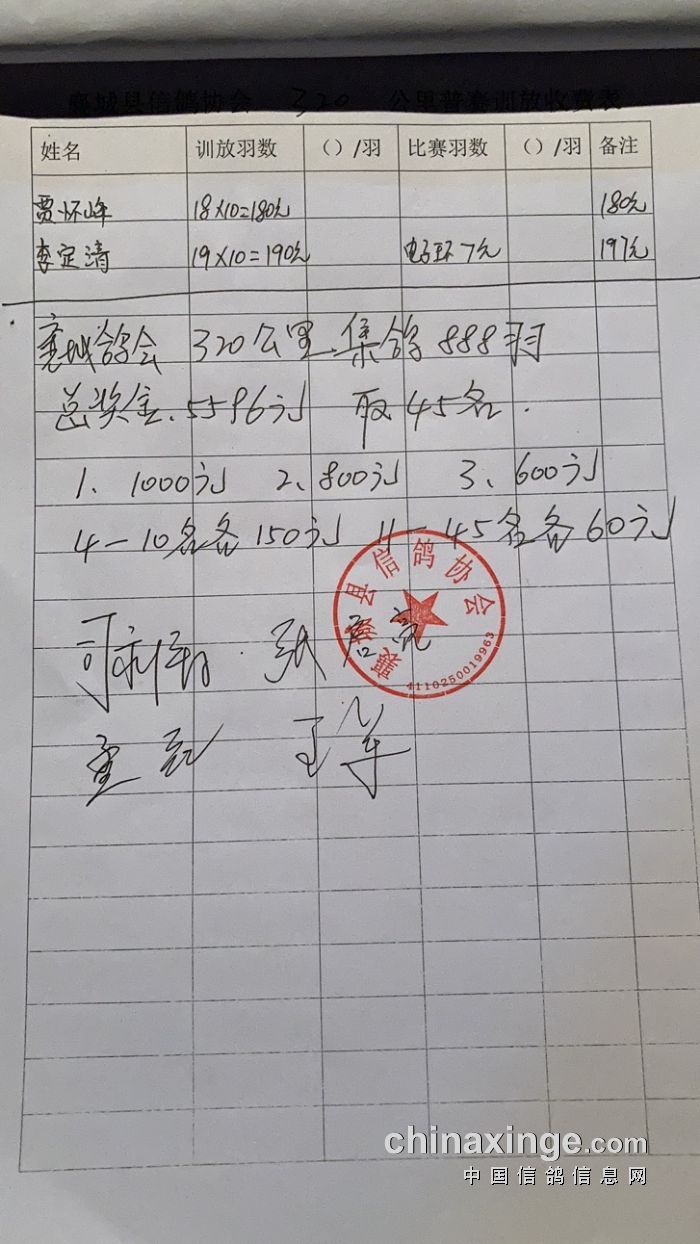 襄城县信鸽协会 320 公里普赛训放收费表
姓名 训放羽数 （）/羽 比赛羽数 （）/羽 备注
贾怀峰 18×10=180元 180元
李定清 19×10=190元 电子环7元 197元
襄城鸽会 320公里.集鸽888羽
总奖金.5596元 取45名.
1、1000元 2、800元 3、600元
4-10名各150元 11-45名各60元
襄城县信鸽协会
4110250019963
chinaxinge.com
中国信鸽信息网